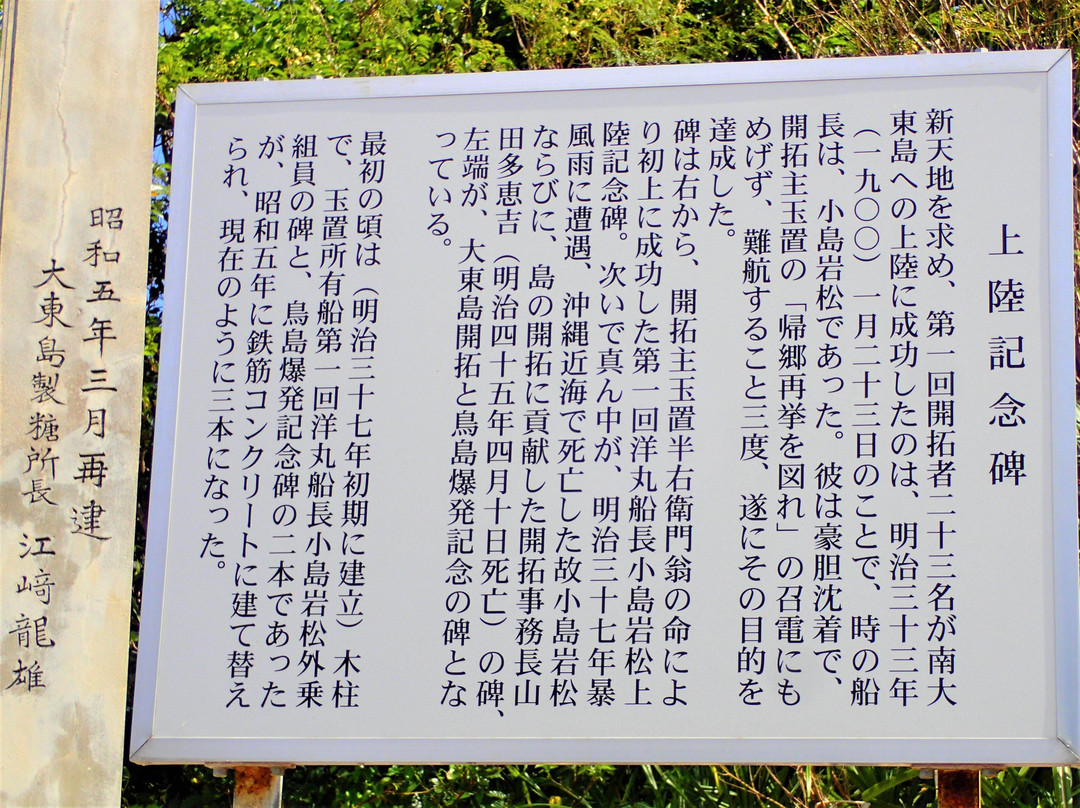 上陸記念碑
新天地を求め、第一回開拓者二十三名が南大
東島への上陸に成功したのは、明治三十三年
（一九〇〇）一月二十三日のことで、時の船
長は、小島岩松であった。彼は豪胆沈着で、
開拓主玉置の「帰郷再挙を図れ」の召電にも
めげず、難航すること三度、遂にその目的を
達成した。
碑は右から、開拓主玉置半右衛門翁の命によ
り初上に成功した第一回洋丸船長小島岩松上
陸記念碑。次いで真ん中が、明治三十七年暴
風雨に遭遇、沖縄近海で死亡した故小島岩松
ならびに、島の開拓に貢献した開拓事務長山
田多恵吉（明治四十五年四月十日死亡）の碑、
左端が、大東島開拓と鳥島爆発記念の碑とな
っている。
最初の頃は（明治三十七年初期に建立）木柱
で、玉置所有船第一回洋丸船長小島岩松外乗
組員の碑と、鳥島爆発記念碑の二本であった
が、昭和五年に鉄筋コンクリートに建て替え
られ、現在のように三本になった。
昭和五年三月再建
大東島製糖所長 江﨑龍雄